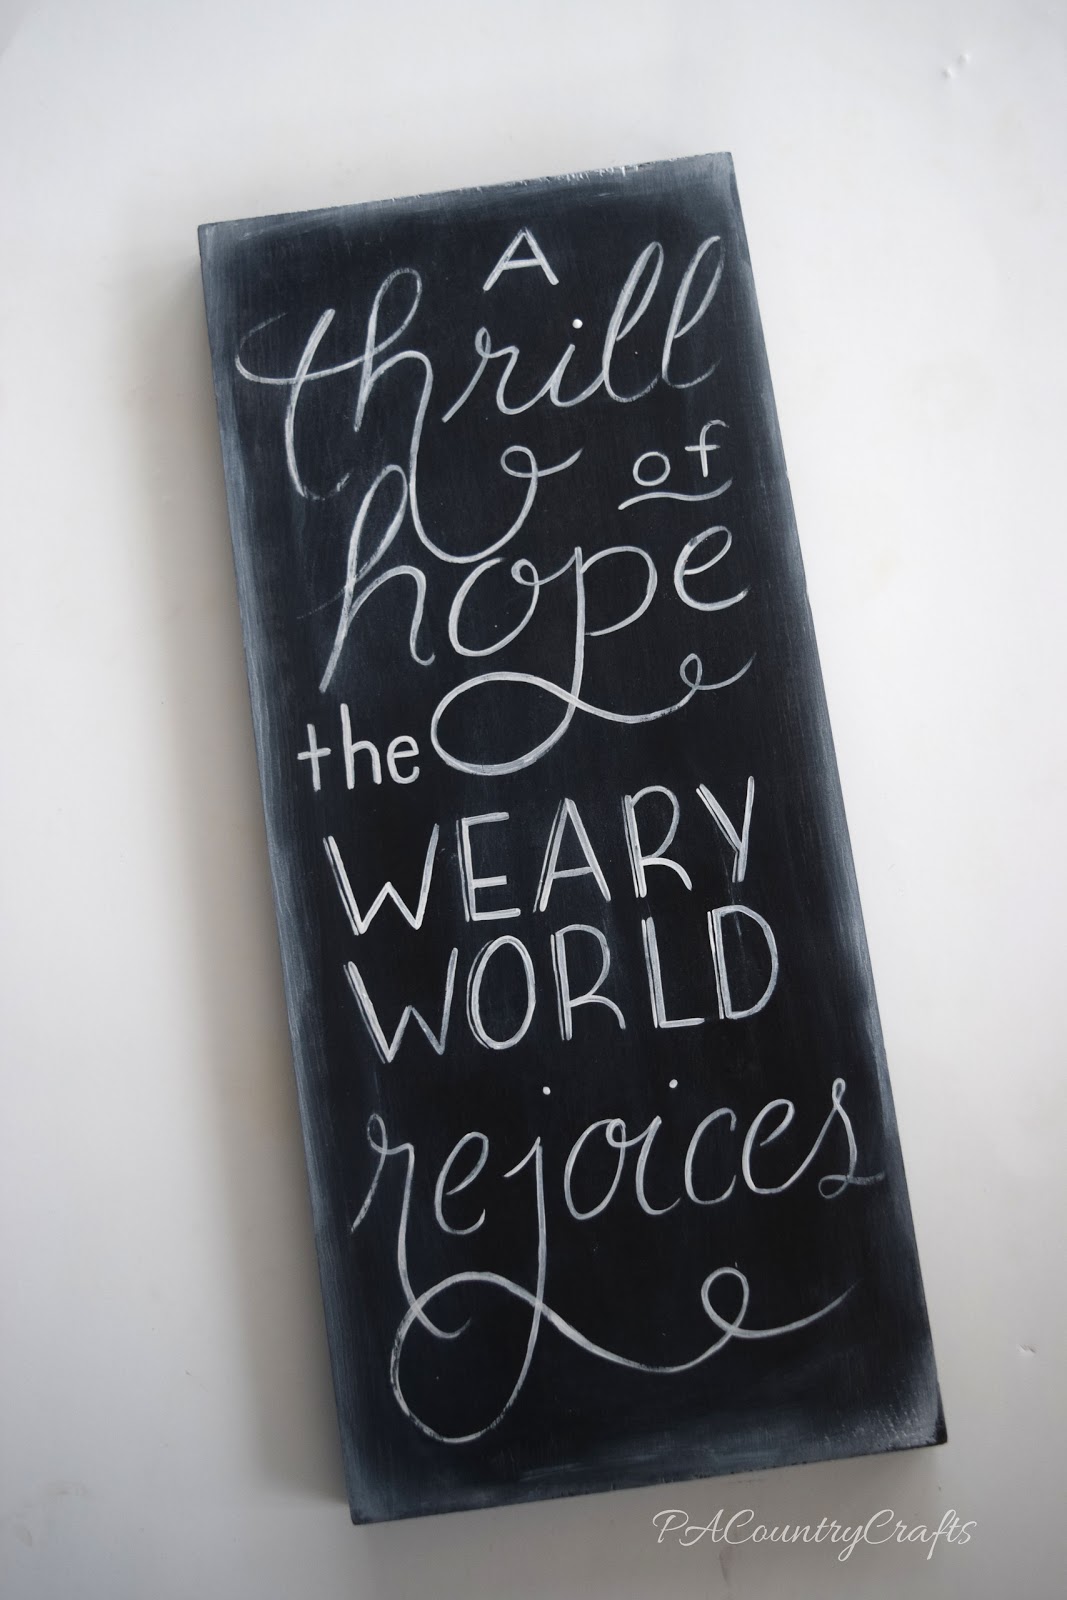 A
thrill
of
hope
the
WEARY
WORLD
rejoices
PACountryCrafts